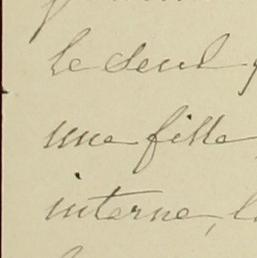 le seul
une fille
interne, l